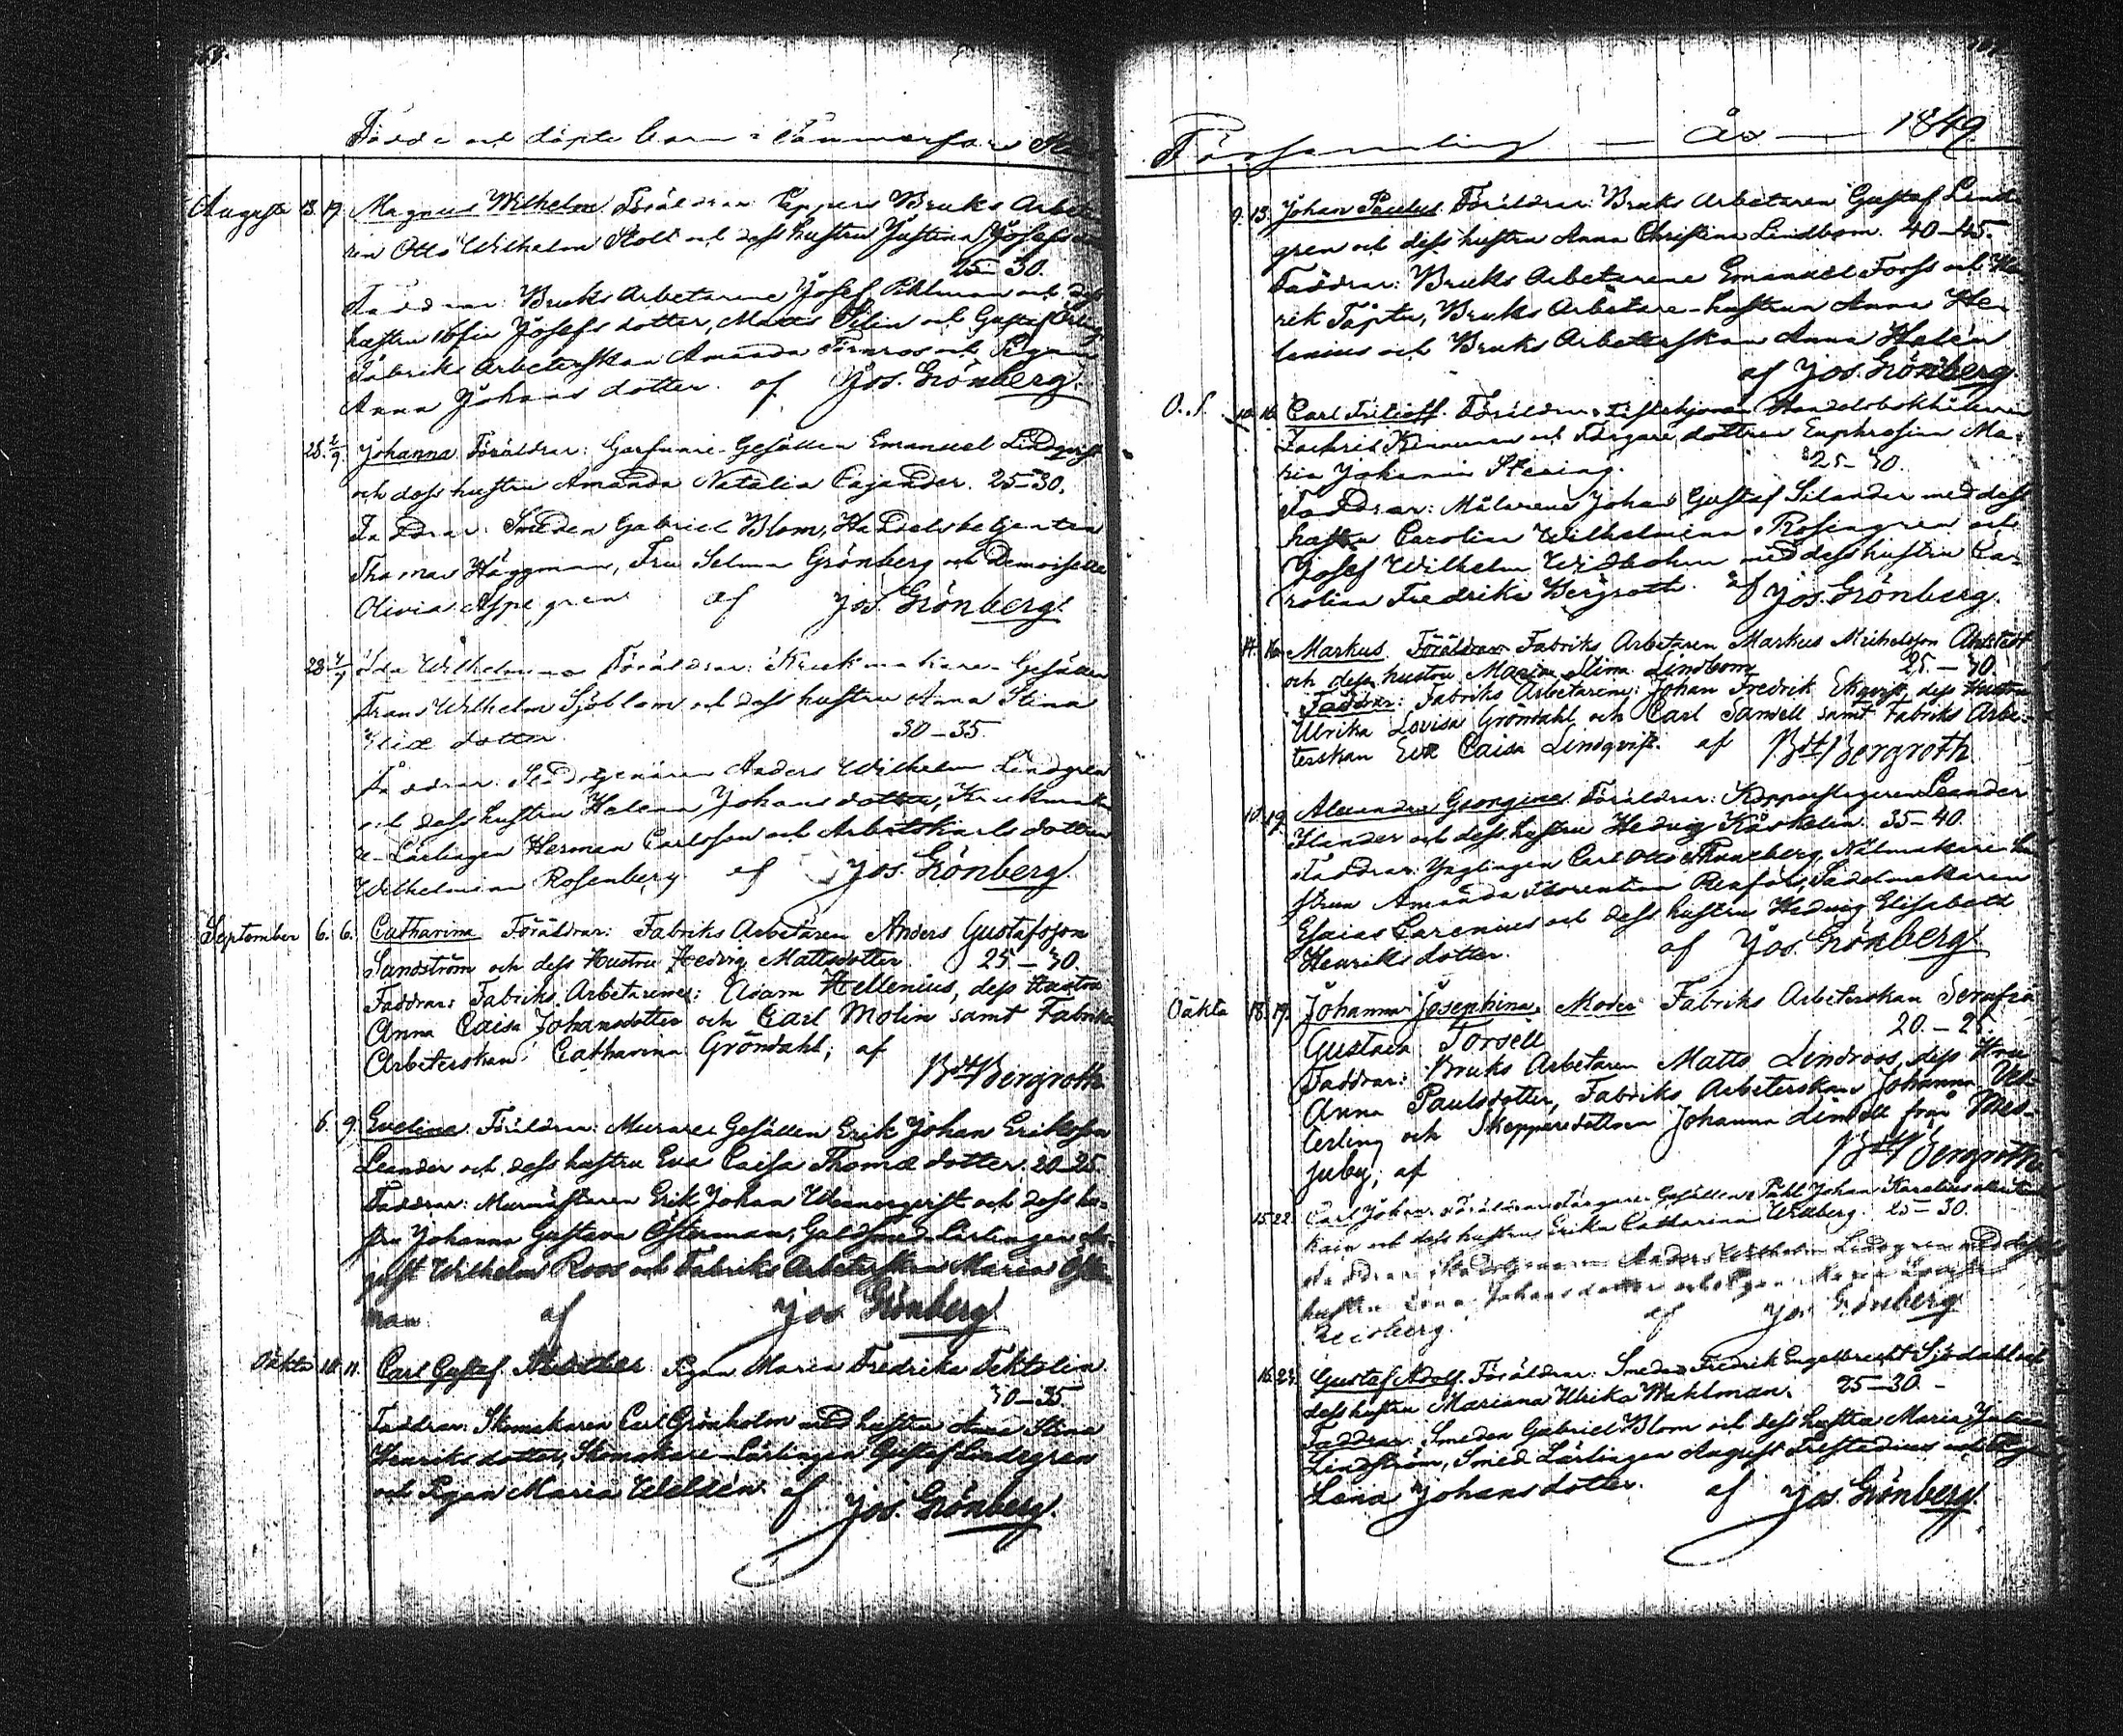 Födde och döpte barn i Tammerfors Stads
Augusti 13. 17. Magnus Wilhelm Föräldrar: Pappers Bruks Arbeta-
ren Otto Wilhelm Stolt och dess hustru Justina Josefs
25-30.
Faddrar: Bruks Arbetarene Josef Pihlman och dess
hustru Josefs dotter, Matts och Gustaf
Fabriks Arbeterskan Amanda Törnroos och Pigan
Anna Johans dotter. af Jos. Grönberg.
28. 2/9. Johanna Föräldrar: Garfvare-Gesällen Emanuel Lindqvist
och dess hustru Amanda Natalia Cajander. 25-30.
Faddrar: Smeden Gabriel Blom, Handelsbetjenten
Thomas Häggman, Fru Selma Grönberg och Demoiselle
Olivia Aspegren af Jos. Grönberg.
28. Ida Wilhelmina Föräldrar: Krukmakare-Gesällen
Frans Wilhelm Sjöblom och dess hustru Anna Stina
dotter. 30-35.
Faddrar: Anders Wilhelm Lindgren
och dess hustru Helena Johans dotter, Krukmaka-
re-Lärlingen Herman Carlsson och Arbetskarls dottren
Wilhelmina Rosenberg. af Jos. Grönberg.
September 6. 6. Catharina Föräldrar: Fabriks Arbetaren Anders Gustafsson
Sandström och dess Hustru Hedvig Mattsdotter. 25-30.
Faddrar: Fabriks Arbetarene: Adam Hellenius, dess Hustru
Anna Caisa Johansdotter och Carl Molin samt Fabriks
Arbeterskan Catharina Gröndahl; af
Bergroth
6. 9. Evelina Föräldrar: Murare Gesällen Erik Johan Eriksson
Leander och dess hustru Eva Caisa Thomæ dotter. 20-25.
Faddrar: Murmästaren Erik Johan Wennerqvist och dess hu-
stru Johanna Gustava Österman, Guldsmeds Lärlingen Au-
gust Wilhelm Roos och Fabriks Arbeterskan Maria Öster-
man. af Jos Grönberg
10. 11. Carl Gustaf Moder Pigan Maria Fredrika Tektolin.
30-35.
Faddrar: Skomakaren Carl Grönholm med hustru Anna Stina
Henriks dotter, Skomakare-Lärlingen Gustaf Lindegren
och Pigan Maria Weldén. af Jos. Grönberg.
Församling År 1849
9. 13. Johan Paulus Föräldrar: Bruks Arbetaren Gustaf Lind-
gren och dess hustru Anna Christina Lindbom. 40-45.
Faddrar: Bruks Arbetarene Emanuel Forss och Hen-
rik Töptu, Bruks Arbetare-hustrun Anna Hel-
lenius och Bruks Arbeterskan Anna Helén
af Jos. Grönberg.
10. 16. Carl Föräldrar: Handelsbokhållaren
Zachris Kinnunen och Färgare dottren Euphrosina Ma-
ria Johanna 25-30.
Faddrar: Målarene Johan Gustaf Silander med dess
hustru Carolina Wilhelmina Rosengren och
Josef Wilhelm Widbohm med dess hustru Ca-
rolina Fredrika Bergroth. af Jos. Grönberg.
14. 16. Markus. Föräldrar: Fabriks Arbetaren Markus Michelsson
och dess hustru Maria Stina Lindbom 25-30.
Faddrar: Fabriks Arbetarene: Johan Fredrik Ekqvist, dess Hustru
Ulrika Lovisa Gröndahl och Carl Sandell samt Fabriks Arbe-
terskan Eva Caisa Lindqvist. af Bergroth
10. 19. Alexandra Georgina Föräldrar: Kopparslagaren Leander
Ilander och dess hustru Hedvig 35-40.
Faddrar: Ynglingen Carl Otto Thuneberg, Nålmakare hu-
strun Amanda Florentina Renfors, Sadelmakaren
Esaias Carenius och dess hustru Hedvig Elisabeth
Henriks dotter. af Jos. Grönberg
18. 19. Johanna Josephina, Moder Fabriks Arbeterskan Serafia
Gustava Torsell 20-25.
Faddrar: Bruks Arbetaren Matts Lindroos, dess Hru
Anna Paulsdotter, Fabriks Arbeterskan Johanna Ves-
terling och Skeppare dottren Johanna Lindell från Mes-
juby; af Bergroth
15. 22. Carl Johan Föräldrar: Färgare-Gesällen Påhl Johan
och dess hustru Erika Catharina Widberg. 25-30.
Faddrar: Anders Wilhelm Lindgren med dess
hustru Lena Johans dotter och Pigan
af Jos Grönberg
16. 23. Gustaf Adolf Föräldrar: Smeden Fredrik Engelbrecht Sjödahl och
dess hustru Mariana Ulrika Wahlman. 25-30.
Faddrar: Smeden Gabriel Blom och dess hustru Maria
Lindström, Smed-Lärlingen August och Pigan
Lena Johans dotter. af Jos. Grönberg.